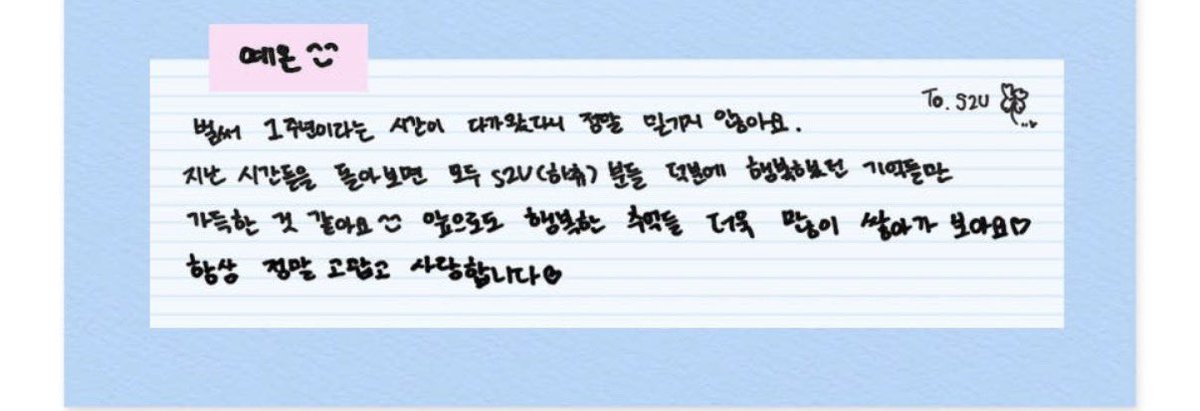 예온
To. S2U
벌써 1주년이라는 시간이 다가왔다니 정말 믿기지 않아요.
지난 시간들을 돌아보면 모두 S2U(하뮤) 분들 덕분에 행복했던 기억들만
가득한 것 같아요 앞으로도 행복한 추억들 더욱 많이 쌓아가 보아요♡
항상 정말 고맙고 사랑합니다♥